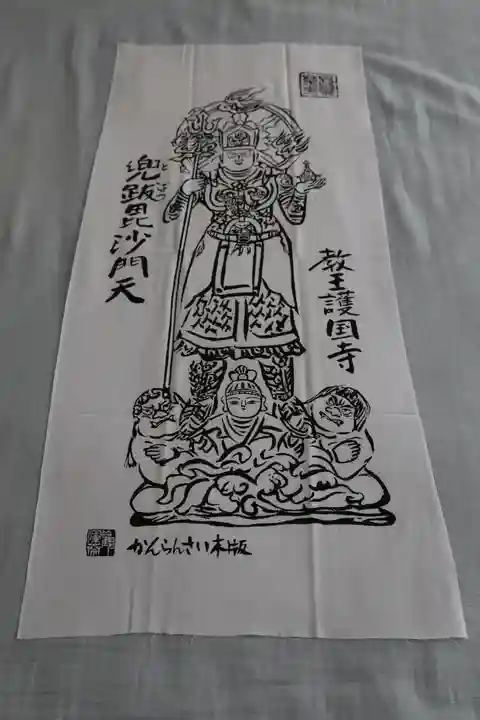 教王護国寺
兜跋毘沙門天
とばつ
かんらんさい本版